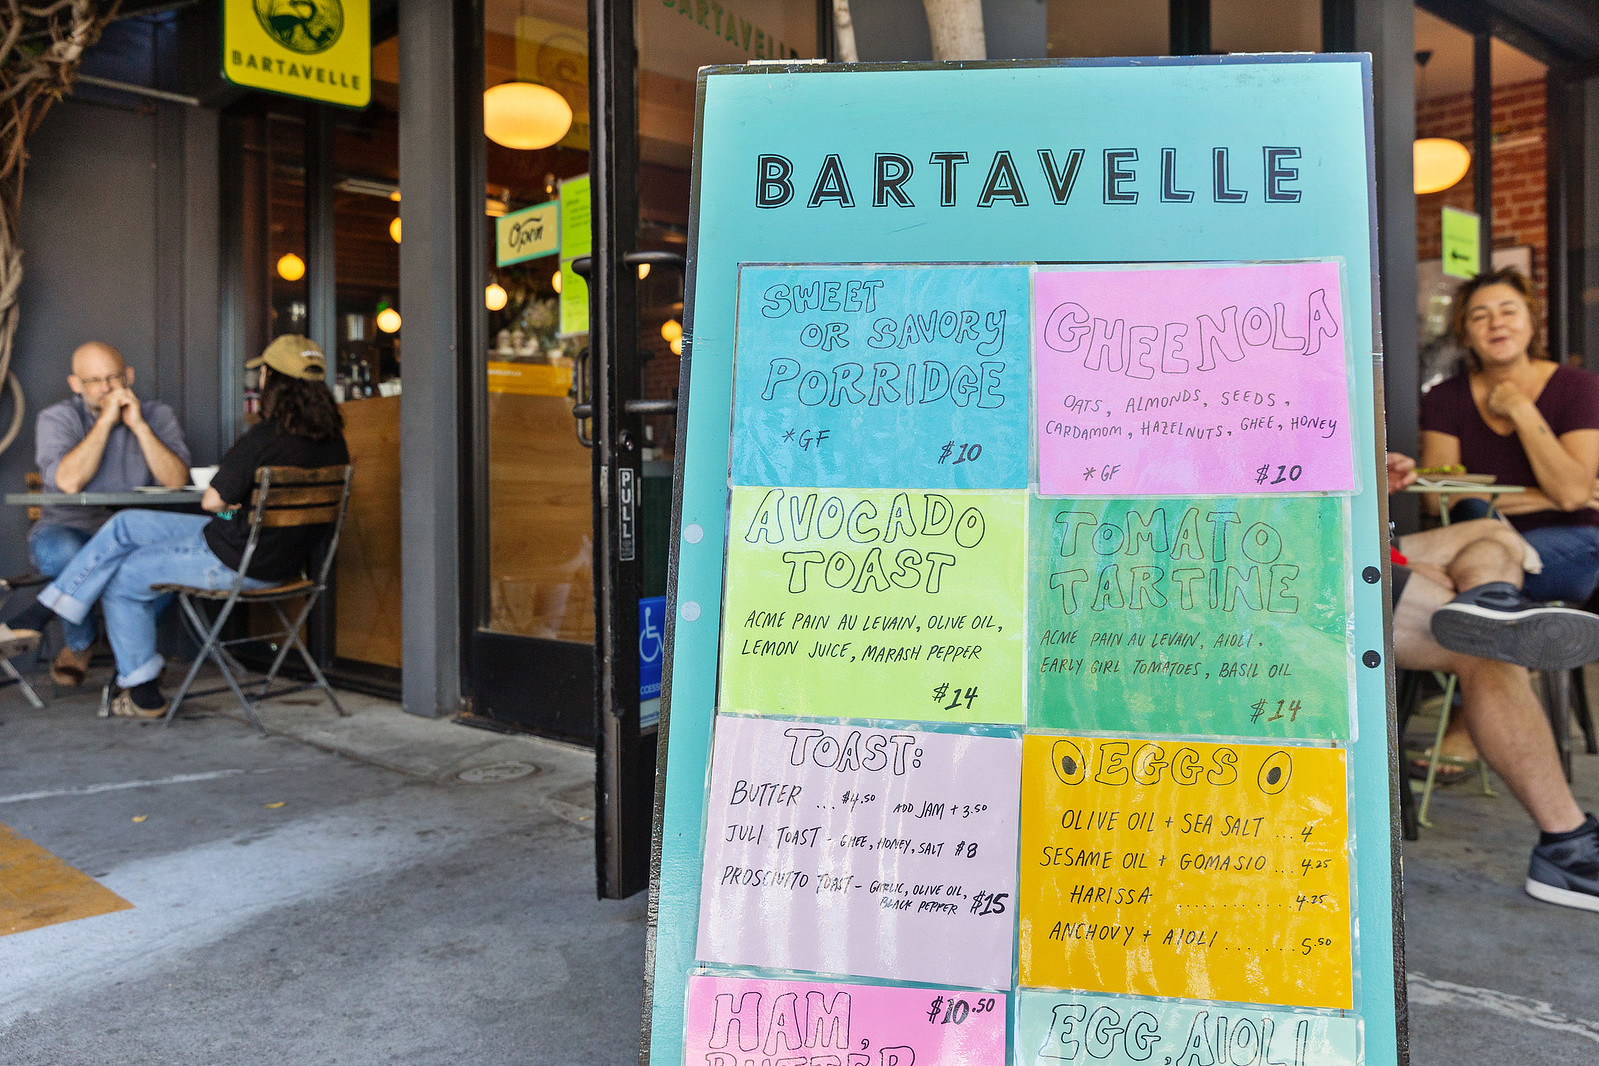 BARTAVELLE
BARTAVELLE
Open
PULL
BARTAVELLE
SWEET
OR SAVORY
PORRIDGE
*GF
$10
GHEENOLA
OATS, ALMONDS, SEEDS,
CARDAMOM, HAZELNUTS, GHEE, HONEY
*GF
$10
AVOCADO
TOAST
ACME PAIN AU LEVAIN, OLIVE OIL,
LEMON JUICE, MARASH PEPPER
$14
TOMATO
TARTINE
ACME PAIN AU LEVAIN, AIOLI.
EARLY GIRL TOMATOES, BASIL OIL
$14
TOAST:
BUTTER ... $4.50 ADD JAM + 3.50
JULI TOAST - GHEE, HONEY, SALT $8
PROSCIUTTO TOAST - GARLIC, OLIVE OIL,
BLACK PEPPER $15
EGGS
OLIVE OIL + SEA SALT ... 4
SESAME OIL + GOMASIO ... 4.25
HARISSA .......... 4.25
ANCHOVY + AIOLI ....... 5.50
HAM, $10.50
BUTTER
EGG, AIOLI